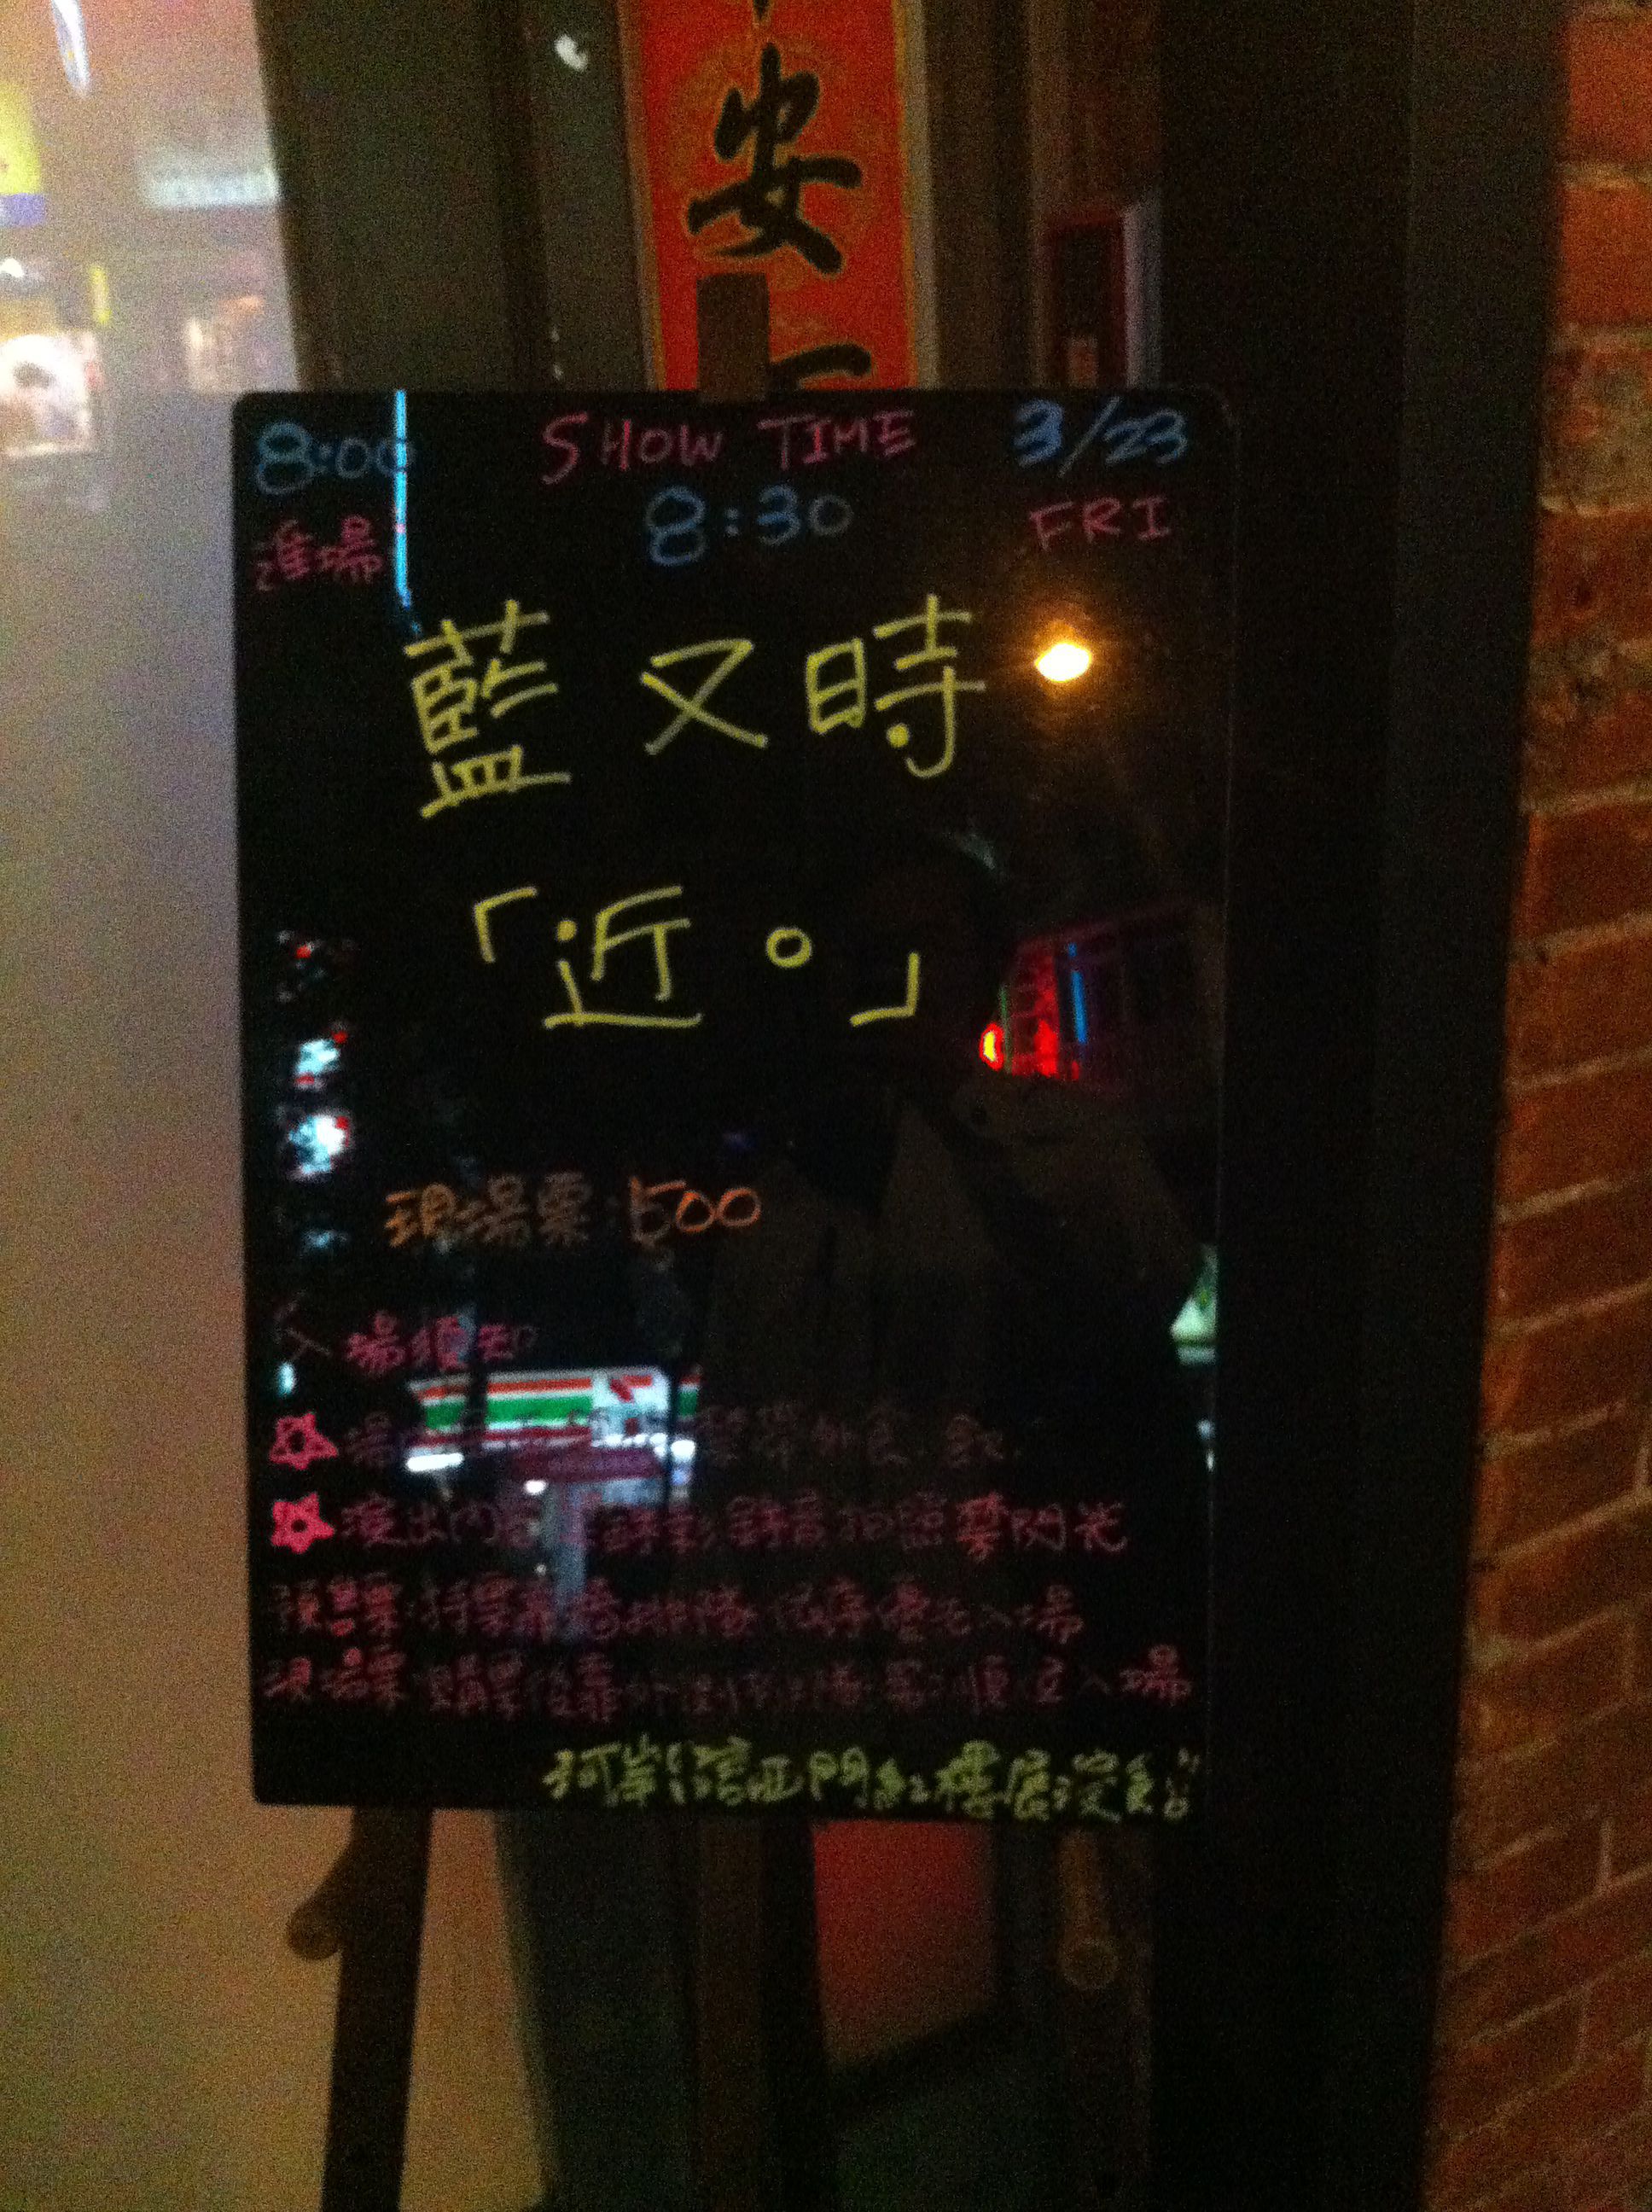 安
8:00 SHOW TIME 3/23
進場 8:30 FRI
藍又時
「近。」
現場票:500
入場須知
禁帶外食、飲
演出內容 錄影錄音拍照禁閃光
預售票:持票靠牆排隊 依序優先入場
現場票:購票後靠 入場
河岸留言西門紅樓展演館